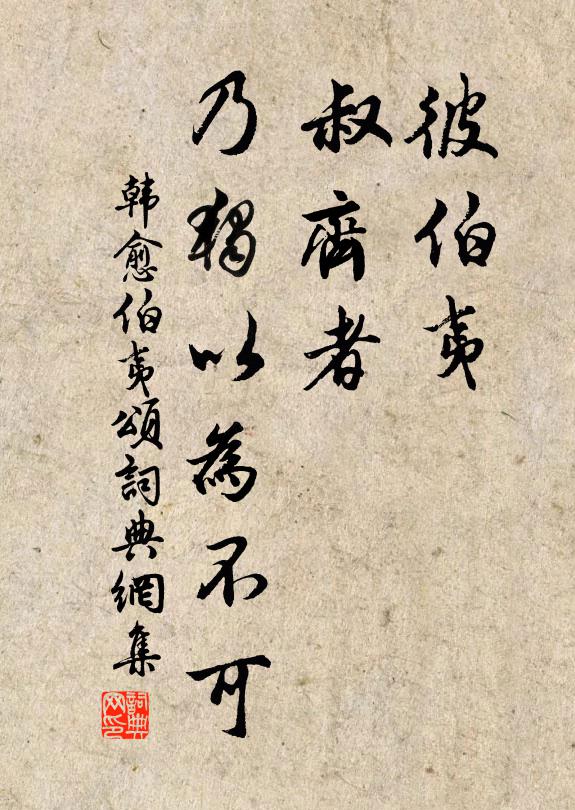 彼伯夷
叔齊者
乃獨以為不可
韩愈伯夷頌詞典網集
詞典
网印